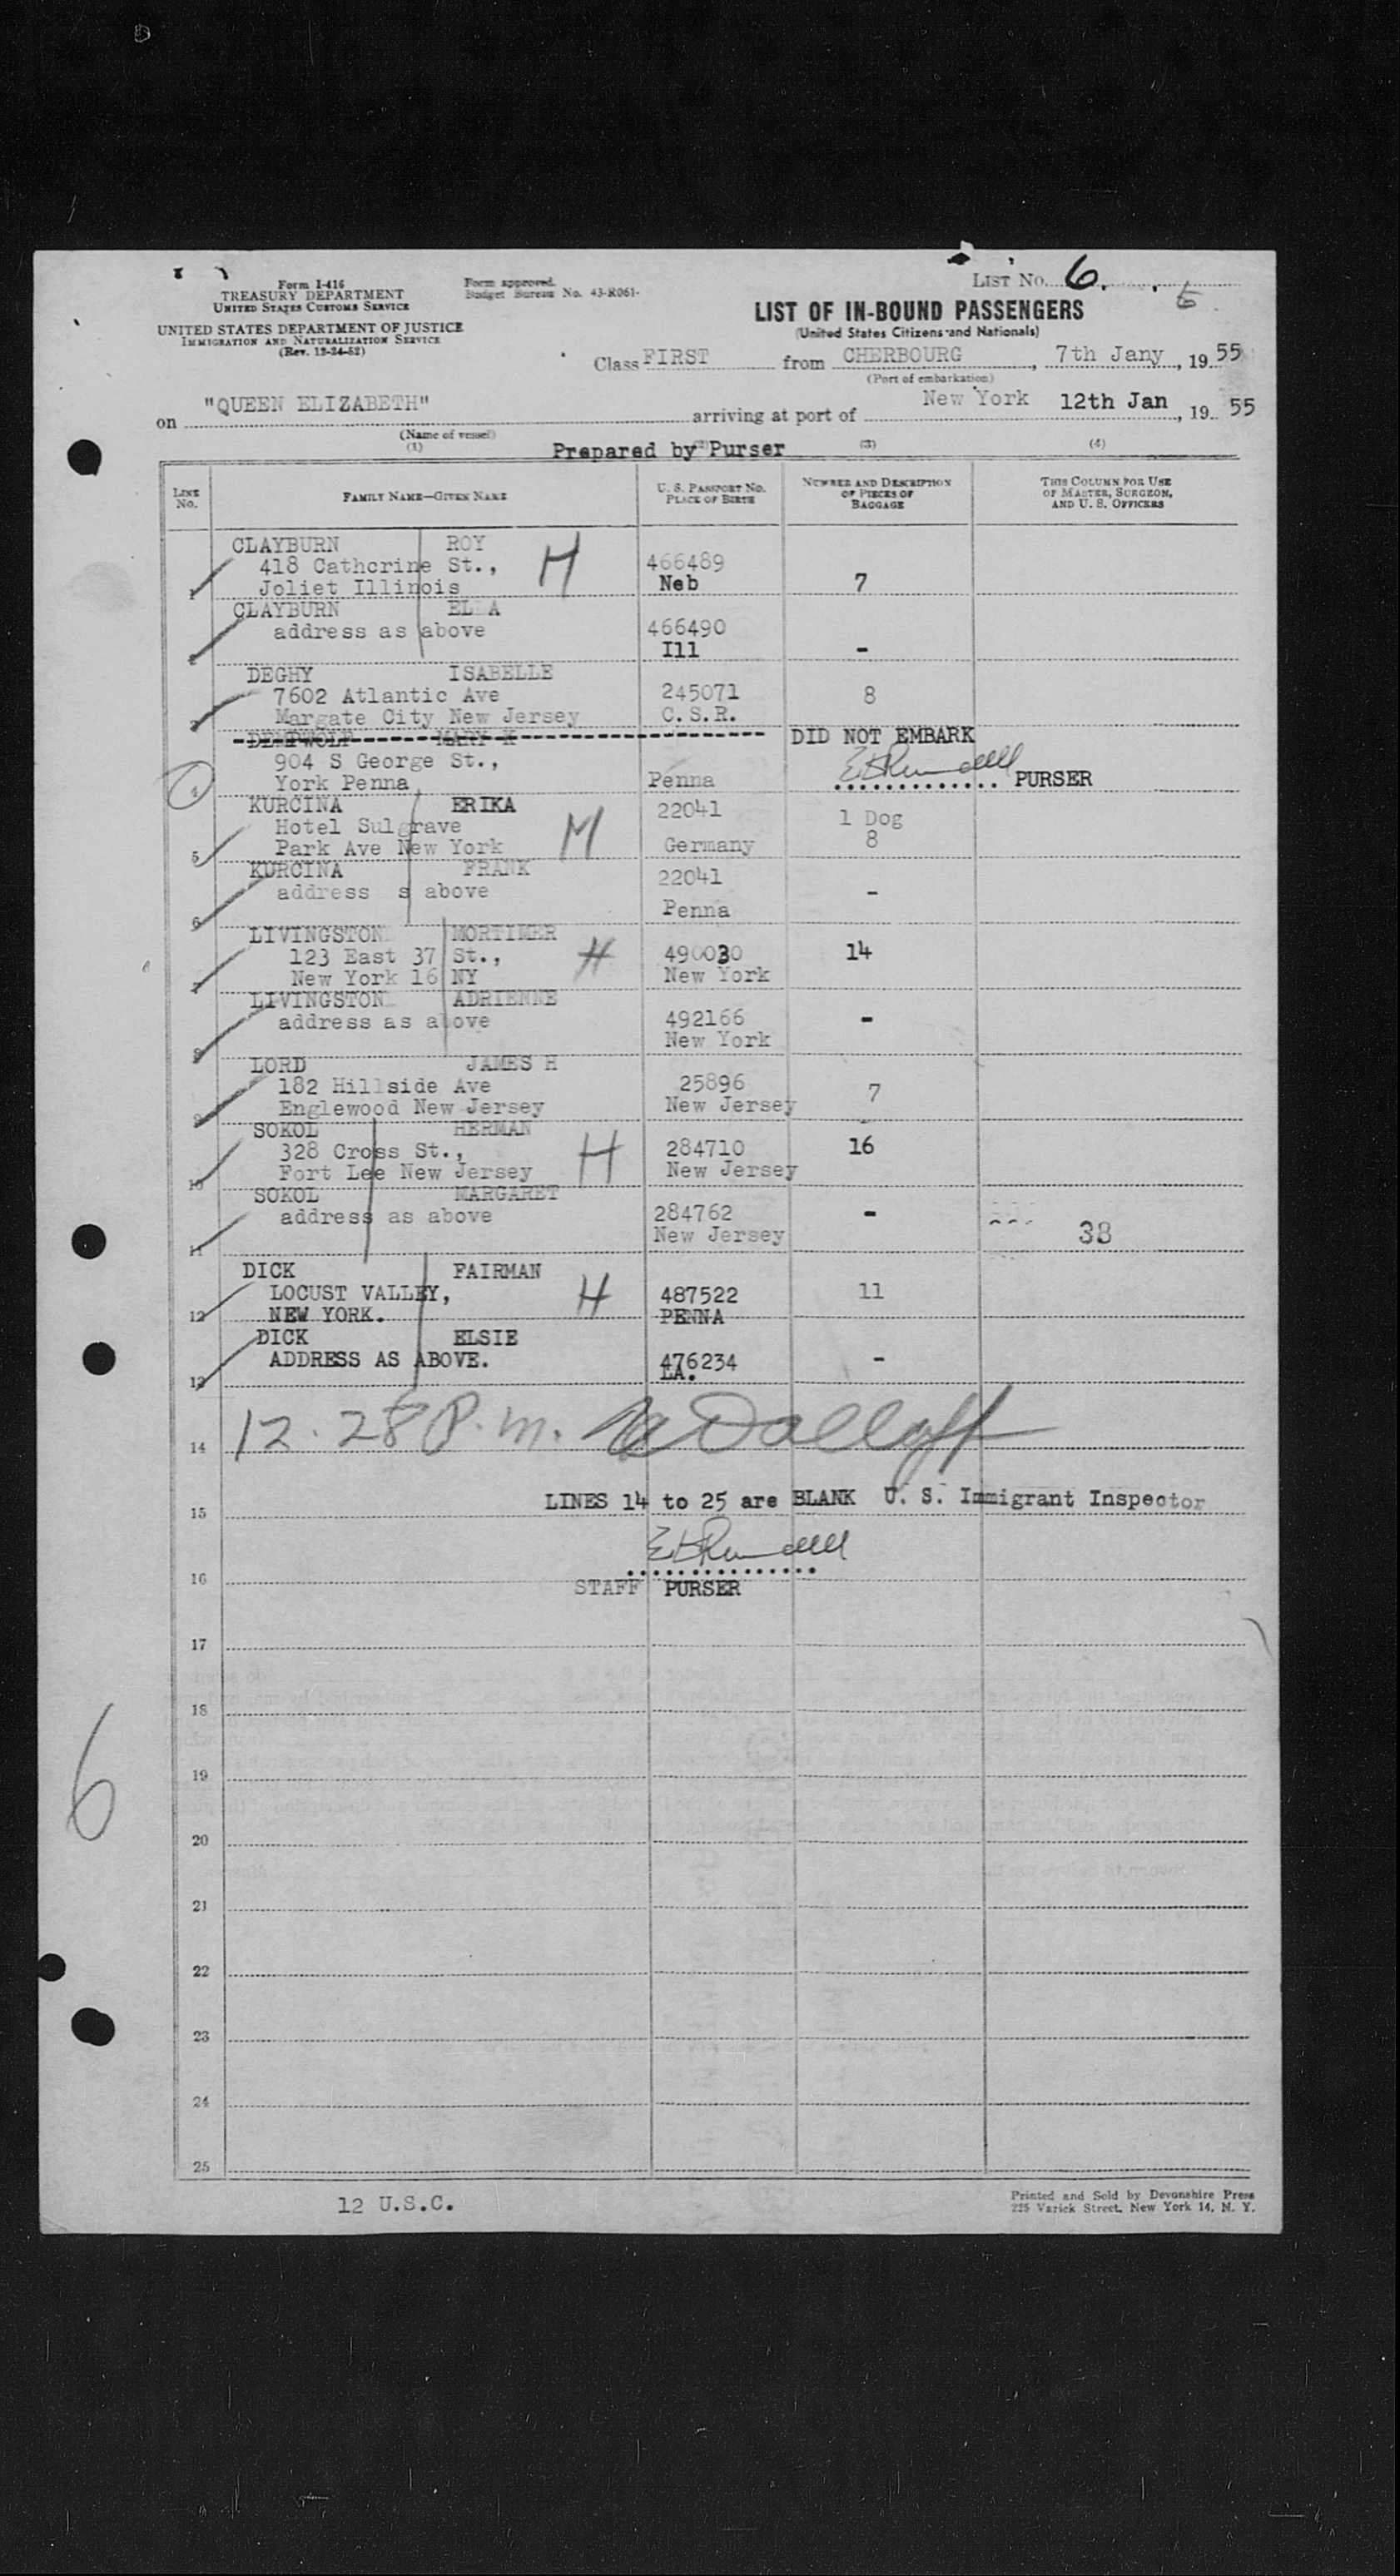 LIST No. 6.
5
Form I-416
TREASURY DEPARTMENT
UNITED STATES CUSTOMS SERVICE
UNITED STATES DEPARTMENT OF JUSTICE
IMMIGRATION AND NATURALIZATION SERVICE
(Rev. 12-24-52)
Form approved.
Budget Bureau No. 43-R061-
LIST OF IN-BOUND PASSENGERS
(United States Citizens and Nationals)
Class FIRST from CHERBOURG, 7th Jany, 19 55
(Port of embarkation)
on "QUEEN ELIZABETH" arriving at port of New York 12th Jan, 19 55
(Name of vessel)
(1) Prepared by (2) Purser (3) (4)
LINE No. FAMILY NAME—GIVEN NAME U. S. PASSPORT No. PLACE OF BIRTH NUMBER AND DESCRIPTION OF PIECES OF BAGGAGE THIS COLUMN FOR USE OF MASTER, SURGEON, AND U. S. OFFICERS
CLAYBURN ROY H
418 Catherine St., 466489
1 Joliet Illinois Neb 7
CLAYBURN EL A
address as above 466490
2 Ill -
DEGHY ISABELLE
7602 Atlantic Ave 245071 8
3 Margate City New Jersey C.S.R.
DEMPWOLF MARY K DID NOT EMBARK
904 S George St.,
4 York Penna Penna PURSER
KURCINA ERIKA 22041 1 Dog
Hotel Sulgrave M 8
5 Park Ave New York Germany
KURCINA FRANK 22041
address s above -
6 Penna
LIVINGSTON MORTIMER
123 East 37 St., H 490030 14
7 New York 16 NY New York
LIVINGSTON ADRIENNE
address as above 492166 -
8 New York
LORD JAMES H
182 Hillside Ave 25896 7
9 Englewood New Jersey New Jersey
SOKOL HERMAN
328 Cross St., H 284710 16
10 Fort Lee New Jersey New Jersey
SOKOL MARGARET
address as above 284762 -
11 New Jersey 38
DICK FAIRMAN
LOCUST VALLEY, H 487522 11
12 NEW YORK. PENNA
DICK ELSIE
ADDRESS AS ABOVE. 476234 -
13 LA.
14 12.28 P.m.
LINES 14 to 25 are BLANK U. S. Immigrant Inspector
15
16
STAFF PURSER
17
18
6
19
20
21
22
23
24
25
12 U.S.C.
Printed and Sold by Devonshire Press
225 Varick Street, New York 14, N. Y.